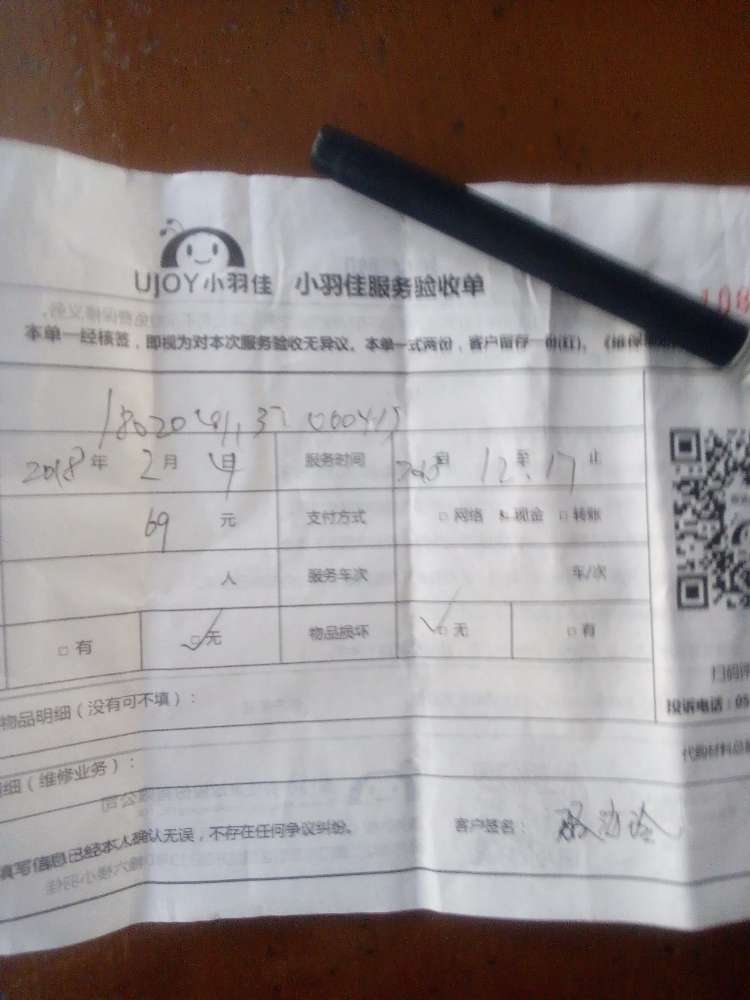 UJOY小羽佳 小羽佳服务验收单
本单一经核签，即视为对本次服务验收无异议。本单一式两份，客户留存一份(红)。
2018年 2月 日 服务时间 12 至 17 止
69 元 支付方式 □ 网络 现金 □ 转账
人 服务车次 车/次
□ 有 □ 无 物品损坏 □ 无 □ 有
扫码评
物品明细（没有可不填）：
投诉电话：05
细（维修业务）：
代购材料总
填写信息已经本人确认无误，不存在任何争议纠纷。 客户签名：